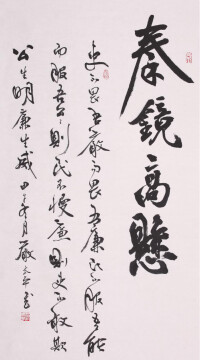 秦鏡高懸
吏不畏吾嚴而畏吾廉民不服吾能
而服吾公則民不慢廉則吏不敢欺
公生明廉生威